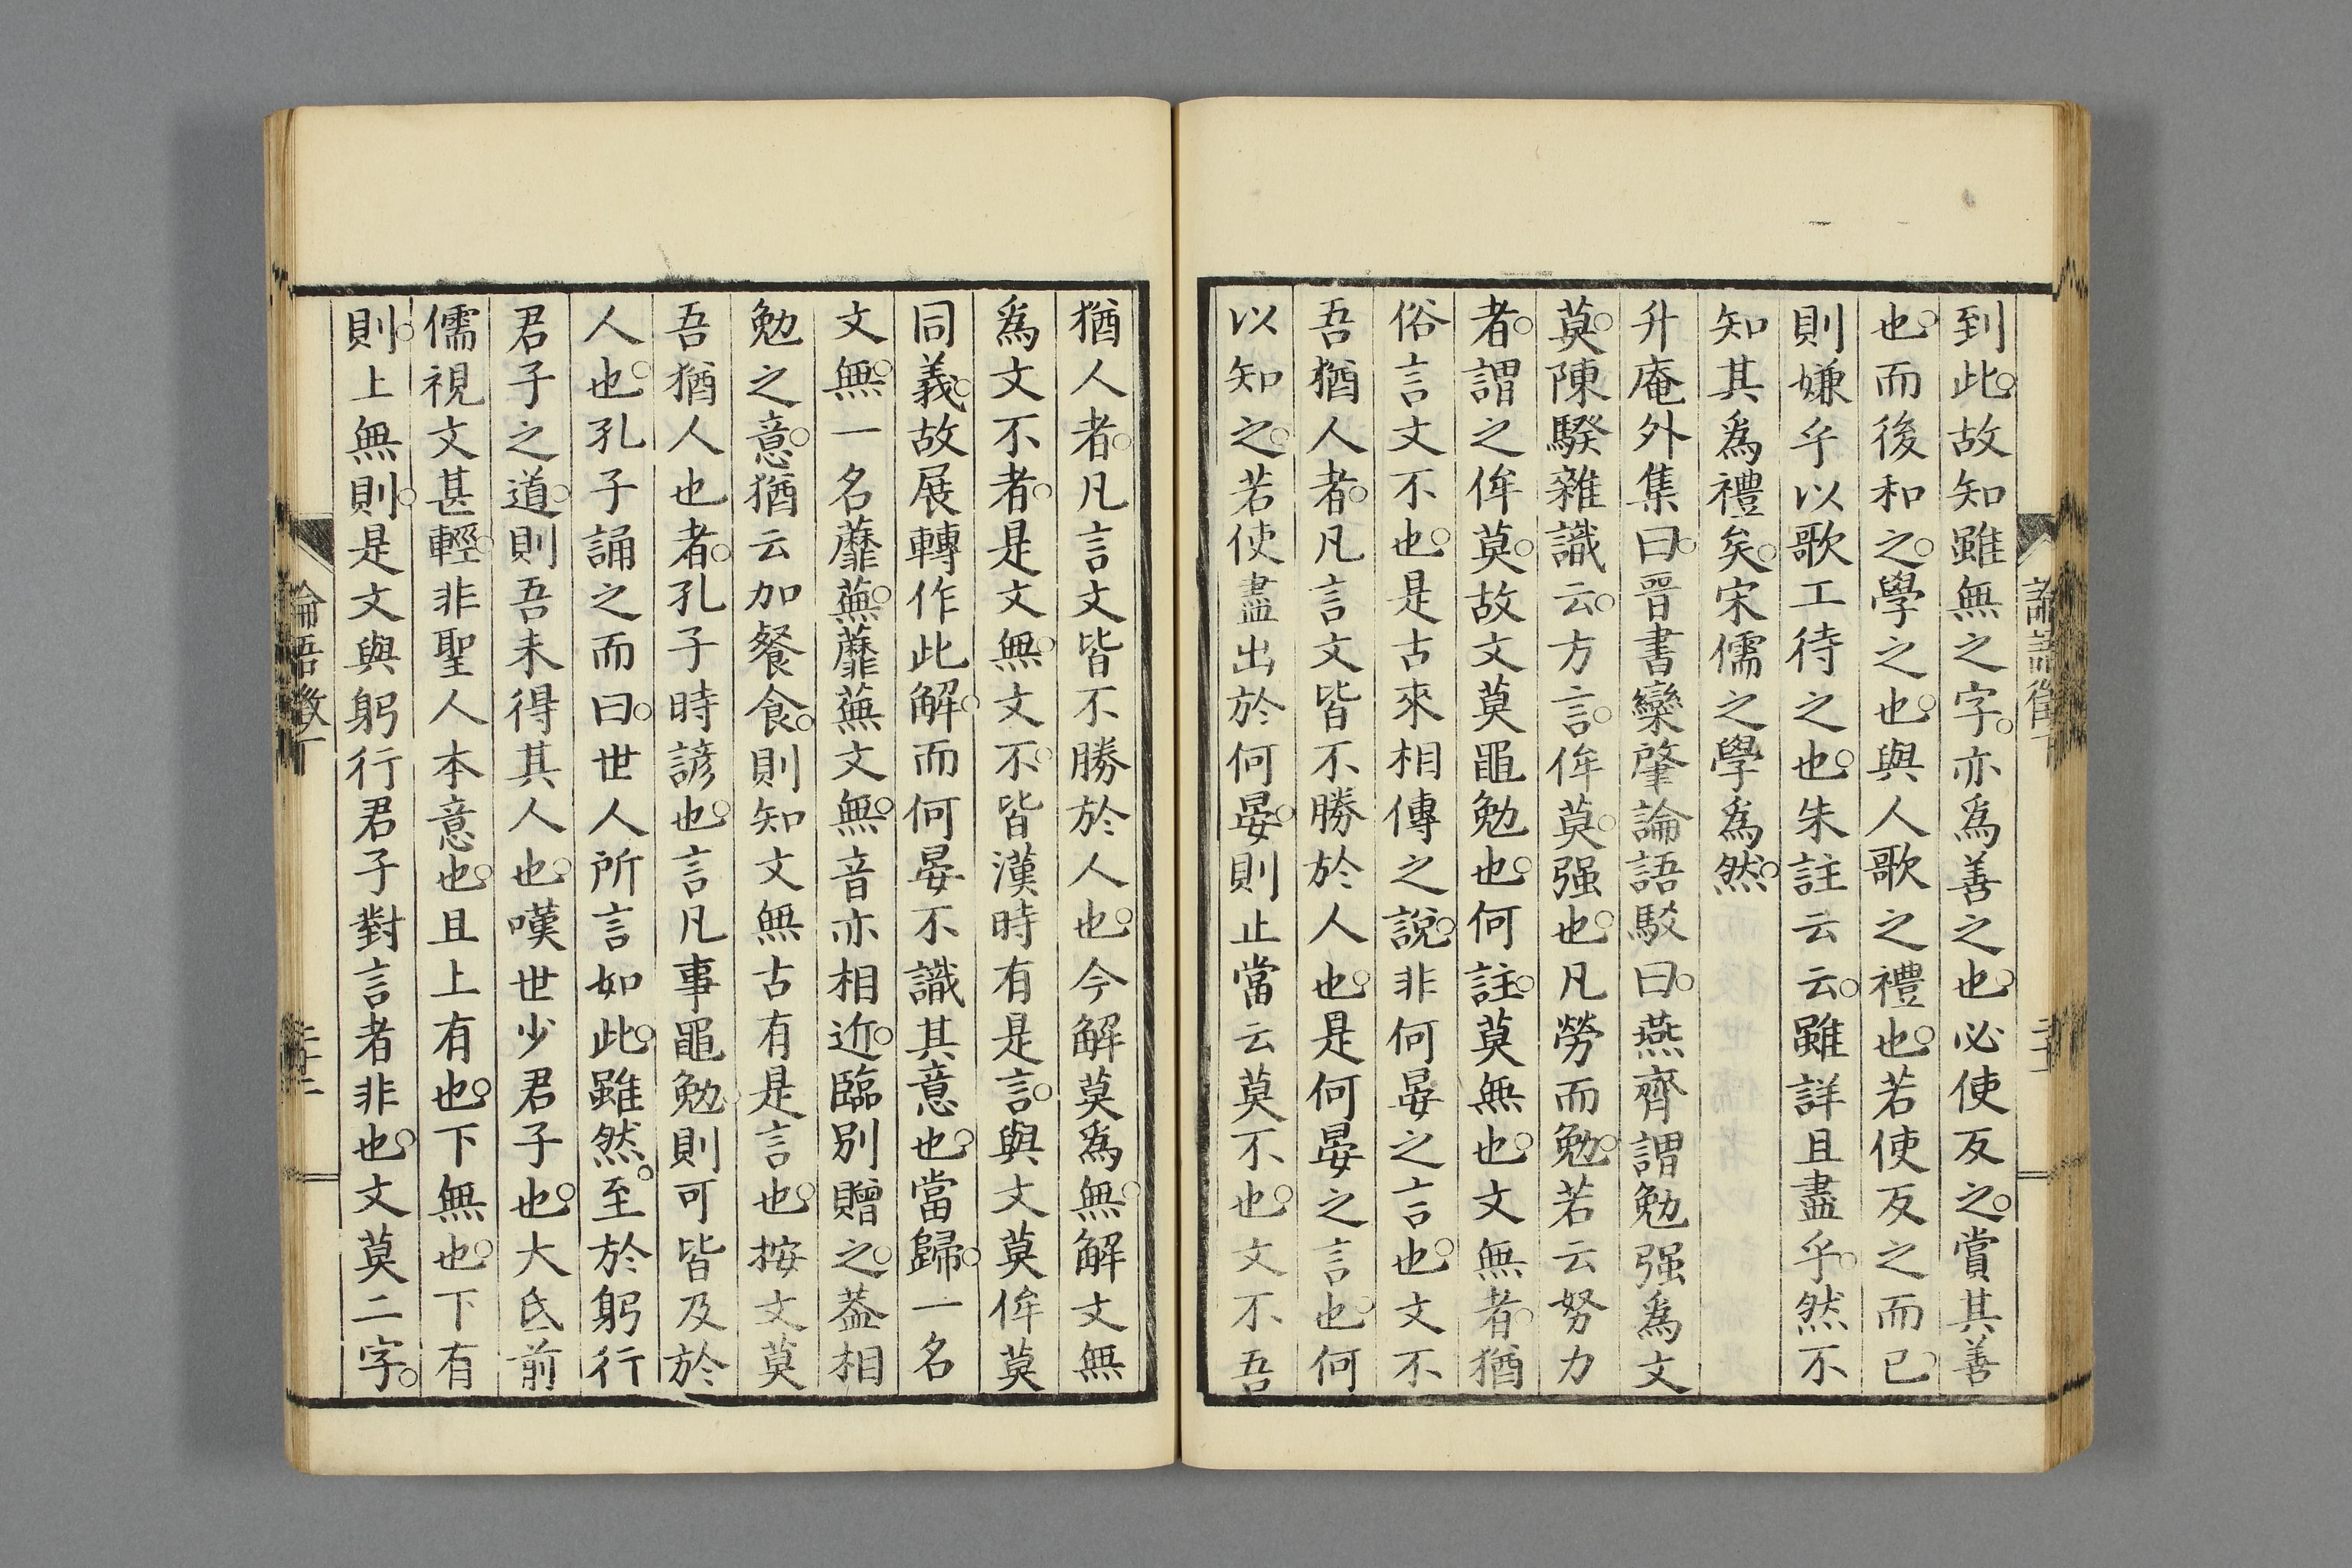 到此。故知雖無之字。亦爲善之也。必使反之。賞其善
也。而後和之。學之也。與人歌之禮也。若使反之而已。
則嫌乎以歌工待之也。朱註云云。雖詳且盡乎。然不
知其爲禮矣。宋儒之學爲然。
升庵外集曰。晉書欒肇論語駁曰。燕齊謂勉强爲文
莫。陳騤雜識云。方言。侔莫。强也。凡勞而勉。若云努力
者。謂之侔莫。故文莫黽勉也。何註。莫無也。文無者。猶
俗言文不也。是古來相傳之說。非何晏之言也。文不
吾猶人者。凡言文皆不勝於人也。是何晏之言也。何
以知之。若使盡出於何晏。則止當云莫不也。文不吾
猶人者。凡言文皆不勝於人也。今解莫爲無。解文無
爲文不者。是文無。文不。皆漢時有是言。與文莫侔莫
同義。故展轉作此解。而何晏不識其意也。當歸。一名
文無。一名蘼蕪。蘼蕪文無。音亦相近。臨別贈之。葢相
勉之意。猶云加餐食。則知文無古有是言也。按文莫
吾猶人也者。孔子時諺也。言凡事黽勉。則可皆及於
人也。孔子誦之而曰。世人所言如此。雖然。至於躬行
君子之道。則吾未得其人也。嘆世少君子也。大氐前
儒視文甚輕。非聖人本意也。且上有也。下無也。下有
則。上無則。是文與躬行君子對言者非也。文莫二字。
論語徵丁